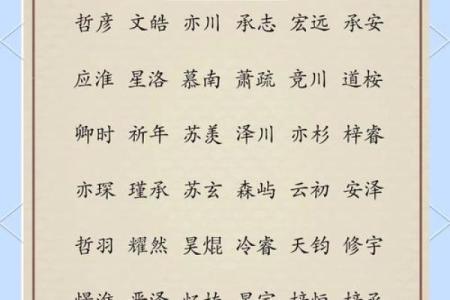 哲彦 文皓 亦川 承志 宏远 承安
应淮 星洛 慕南 萧疏 竞川 道桉
卿时 祈年 苏羡 泽川 亦杉 梓睿
亦琛 瑾承 苏玄 森屿 云初 安泽
哲羽 耀然 昊焜 冷睿 天钧 修宇